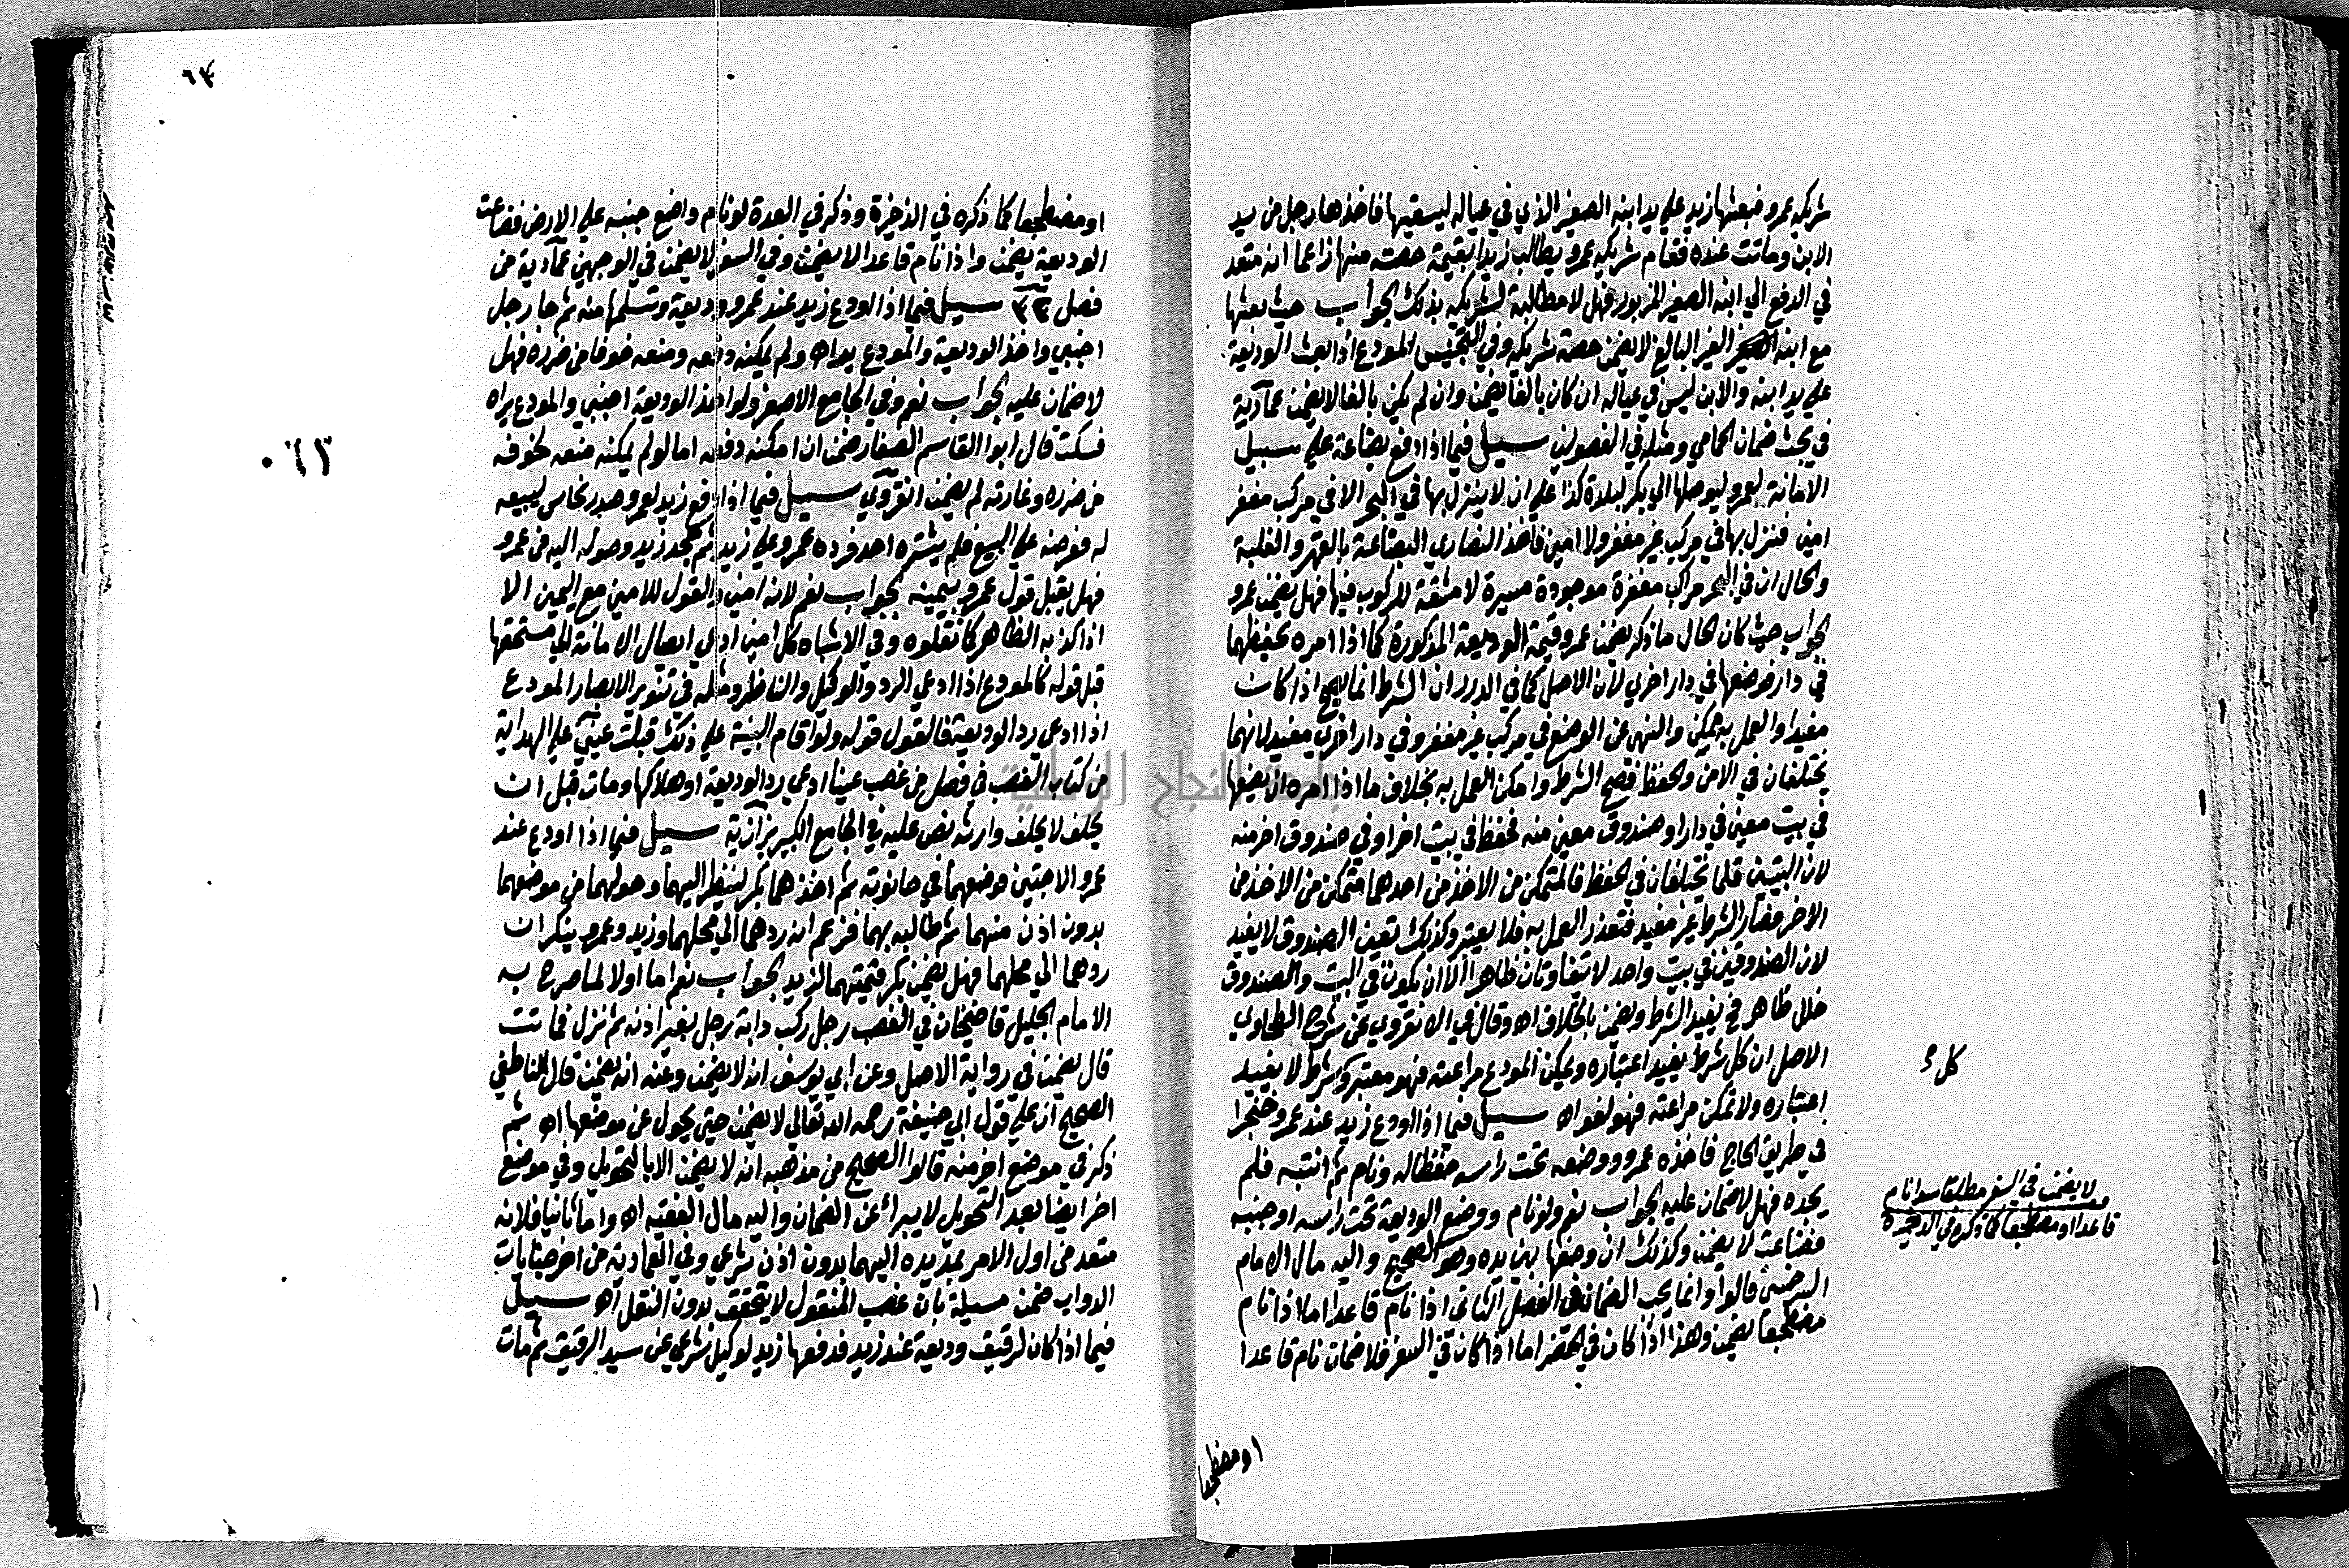 شريكه عمرو فبعثها زيد علي يد ابنه الصغير الذي في عياله ليسقيها فاخذها رجل من يد
الابن وماتت عنده فقام شريكه عمرو يطالب زيدا بقيمة حصته منها زاعما انه متعد
في الدفع الي ابنه الصغير المزبور فهل لا مطالبة لشريكه بذلك الجواب حيث بعثها
مع ابنه الصغير الغير البالغ لا يضمن حصة شريكه وفي التجنيس المودع اذا بعث الوديعة
علي يد ابنه والابن ليس في عياله ان كان بالغا يضمن وان لم يكن بالغا لا يضمن عمادية
في بحث ضمان الحامي ومثله في الفصولين سيل فيما اذا دفع بضاعة علي سبيل
الامانة لعمرو ليوصلها الي بكر لبلدة كذا علي ان لا ينزل بها في البحر الا في مركب مغفر
امين فنزل بها في مركب غير مغفر ولا امين فاخذ النصاري البضاعة بالقهر والغلبة
والحال ان في البحر مراكب مغفرة موجودة ميسرة لا مشقة للركوب فيها فهل يضمن عمرو
الجواب حيث كان الحال ما ذكر يضمن عمرو قيمة الوديعة المذكورة كما اذا امره بحفظهما
في دار فوضعها في دار اخري لان الاصل كما في الدرر ان الشرط انما يصح اذا كان
مفيدا والعمل به ممكن والنهي عن الوضع في مركب غير مغفر وفي دار اخري مفيد لانهما
يختلفان في الامن والحفظ فصح الشرط وامكن العمل به بخلاف ما اذا امره ان يضعها
في بيت معين في دار او صندوق معين منه فحفظ في بيت اخر او في صندوق اخر منه
لان البيتين قلما تختلفان في الحفظ فالمتمكن من الاخذ من احدهما متمكن من الاخذ من
الاخر فصار الشرط غير مفيد فتعذر العمل به فلا يعتبر وكذلك تعين الصندوق لا يفيد
لان الصندوقين في بيت واحد لا يتفاوتان ظاهرا الا ان يكون في البيت والصندوق
خلل ظاهر فح يفيد الشرط ويضمن بالخلاف اه وقال في الانقروي عن شرح الطحاوي
الاصل ان كل شرط يفيد اعتباره ويمكن المودع مراعته فهو معتبر وكل شرط لا يفيد
اعتباره ولا تمكن مراعته فهو لغو اه سيل فيما اذا اودع زيد عند عمرو خنجرا
في طريق الحاج فاخذه عمرو ووضعه تحت راسه حفظا له ونام ثم انتبه فلم
يجده فهل لا ضمان عليه الجواب نعم ولو نام ووضع الوديعة تحت راسه او جنبه
فضاعت لا يضمن وكذلك ان وضعها بين يديه وهو الصحيح واليه مال الامام
السرخسي قالوا وانما يجب الضمان في الفصل الثاني اذا نام قاعدا اما اذا نام
مضطجعا يضمن وهذا اذا كان في الحضر اما اذا كان في السفر فلا ضمان نام قاعدا
او مضطجعا
كل و
لا يضمن في السفر مطلقا سوا نام
قاعدا او مضطجعا كما ذكره في الذخيرة
٦٣
٠٦٣
او مضطجعا كما ذكره في الذخيرة وذكر في العدة لو نام واضع جنبه علي الارض فضاعت
الوديعة يضمن واذا نام قاعدا لا يضمن وفي السفر لا يضمن في الوجهين عمادية من
فصل ٣٣ سيل فيما اذا اودع زيد عند عمرو وديعة وتسلمها منه ثم جا رجل
اجنبي واخذ الوديعة والمودع يراه ولم يمكنه دفعه ومنعه خوفا من ضرره فهل
لا ضمان عليه الجواب نعم وفي الجامع الاصغر ولو اخذ الوديعة اجنبي والمودع يراه
فسكت قال ابوا القاسم الصفار ضمن ان امكنه دفعه اما لو لم يمكنه منعه لخوفه
من ضرره وغارته لم يضمن انقروي سيل فيما اذا دفع زيد لعمرو صدر نحاس ليبيعه
له فعرضه علي البيع فلم يشتره احد فرده عمرو علي زيد ثم جحد زيد وصوله اليه من عمرو
فهل يقبل قول عمرو بيمينه الجواب نعم لانه امين والقول للامين مع اليمين الا
اذا كذبه الظاهر كما نقلوه وفي الاشباه كل امين ادعي ايصال الامانة الي مستحقها
قبل قوله كالمودع اذا ادعي الرد والوكيل والناظر ومثله في تنوير الابصار المودع
اذا ادعي رد الوديعة فالقول قوله ولو اقام البينة علي ذلك قبلت عيني علي الهداية
من كتاب الغصب في فصل من غصب عينا ادعي رد الوديعة او هلاكها ومات قبل ان
يحلف لا يحلف وارثه نص عليه في الجامع الكبير بزازية سيل فيما اذا اودع عند
عمرو الاجتين فوضعهما في حانوته ثم اخذهما بكر لينظر اليهما وحولهما من موضعهما
بدون اذن منهما ثم طالبه بهما فزعم انه ردهما الي محلهما وزيد وعمرو ينكران
ردهما الي محلهما فهل يضمن بكر قيمتهما لزيد الجواب نعم اما اولا لما صرح به
الامام الجليل قاضيخان في الغصب رجل ركب دابة رجل بغير اذنه ثم نزل فماتت
قال يضمن في رواية الاصل وعن ابي يوسف انه لا يضمن وعنه انه يضمن قال الناطفي
الصحيح ان علي قول ابي حنيفة رحمه الله تعالي لا يضمن حتي يحول عن موضعها اه ثم
ذكر في موضع اخر منه قالوا الصحيح من مذهبه انه لا يضمن الا بالتحويل وفي موضع
اخر ايضا بعد التحويل لا يبرا عن الضمان واليه مال الفقيه اه واما ثانيا فلانه
متعد من اول الامر بمد يده اليهما بدون اذن شرعي وفي العمادية من اخر جنايات
الدواب ضمن مسيلة بان غصب المنقول لا يتحقق بدون النقل اه سيل
فيما اذا كان لرقيق وديعة عند زيد فدفعها زيد لوكيل شرعي عن سيد الرقيق ثم مات
جامعة النجاح الوطنية